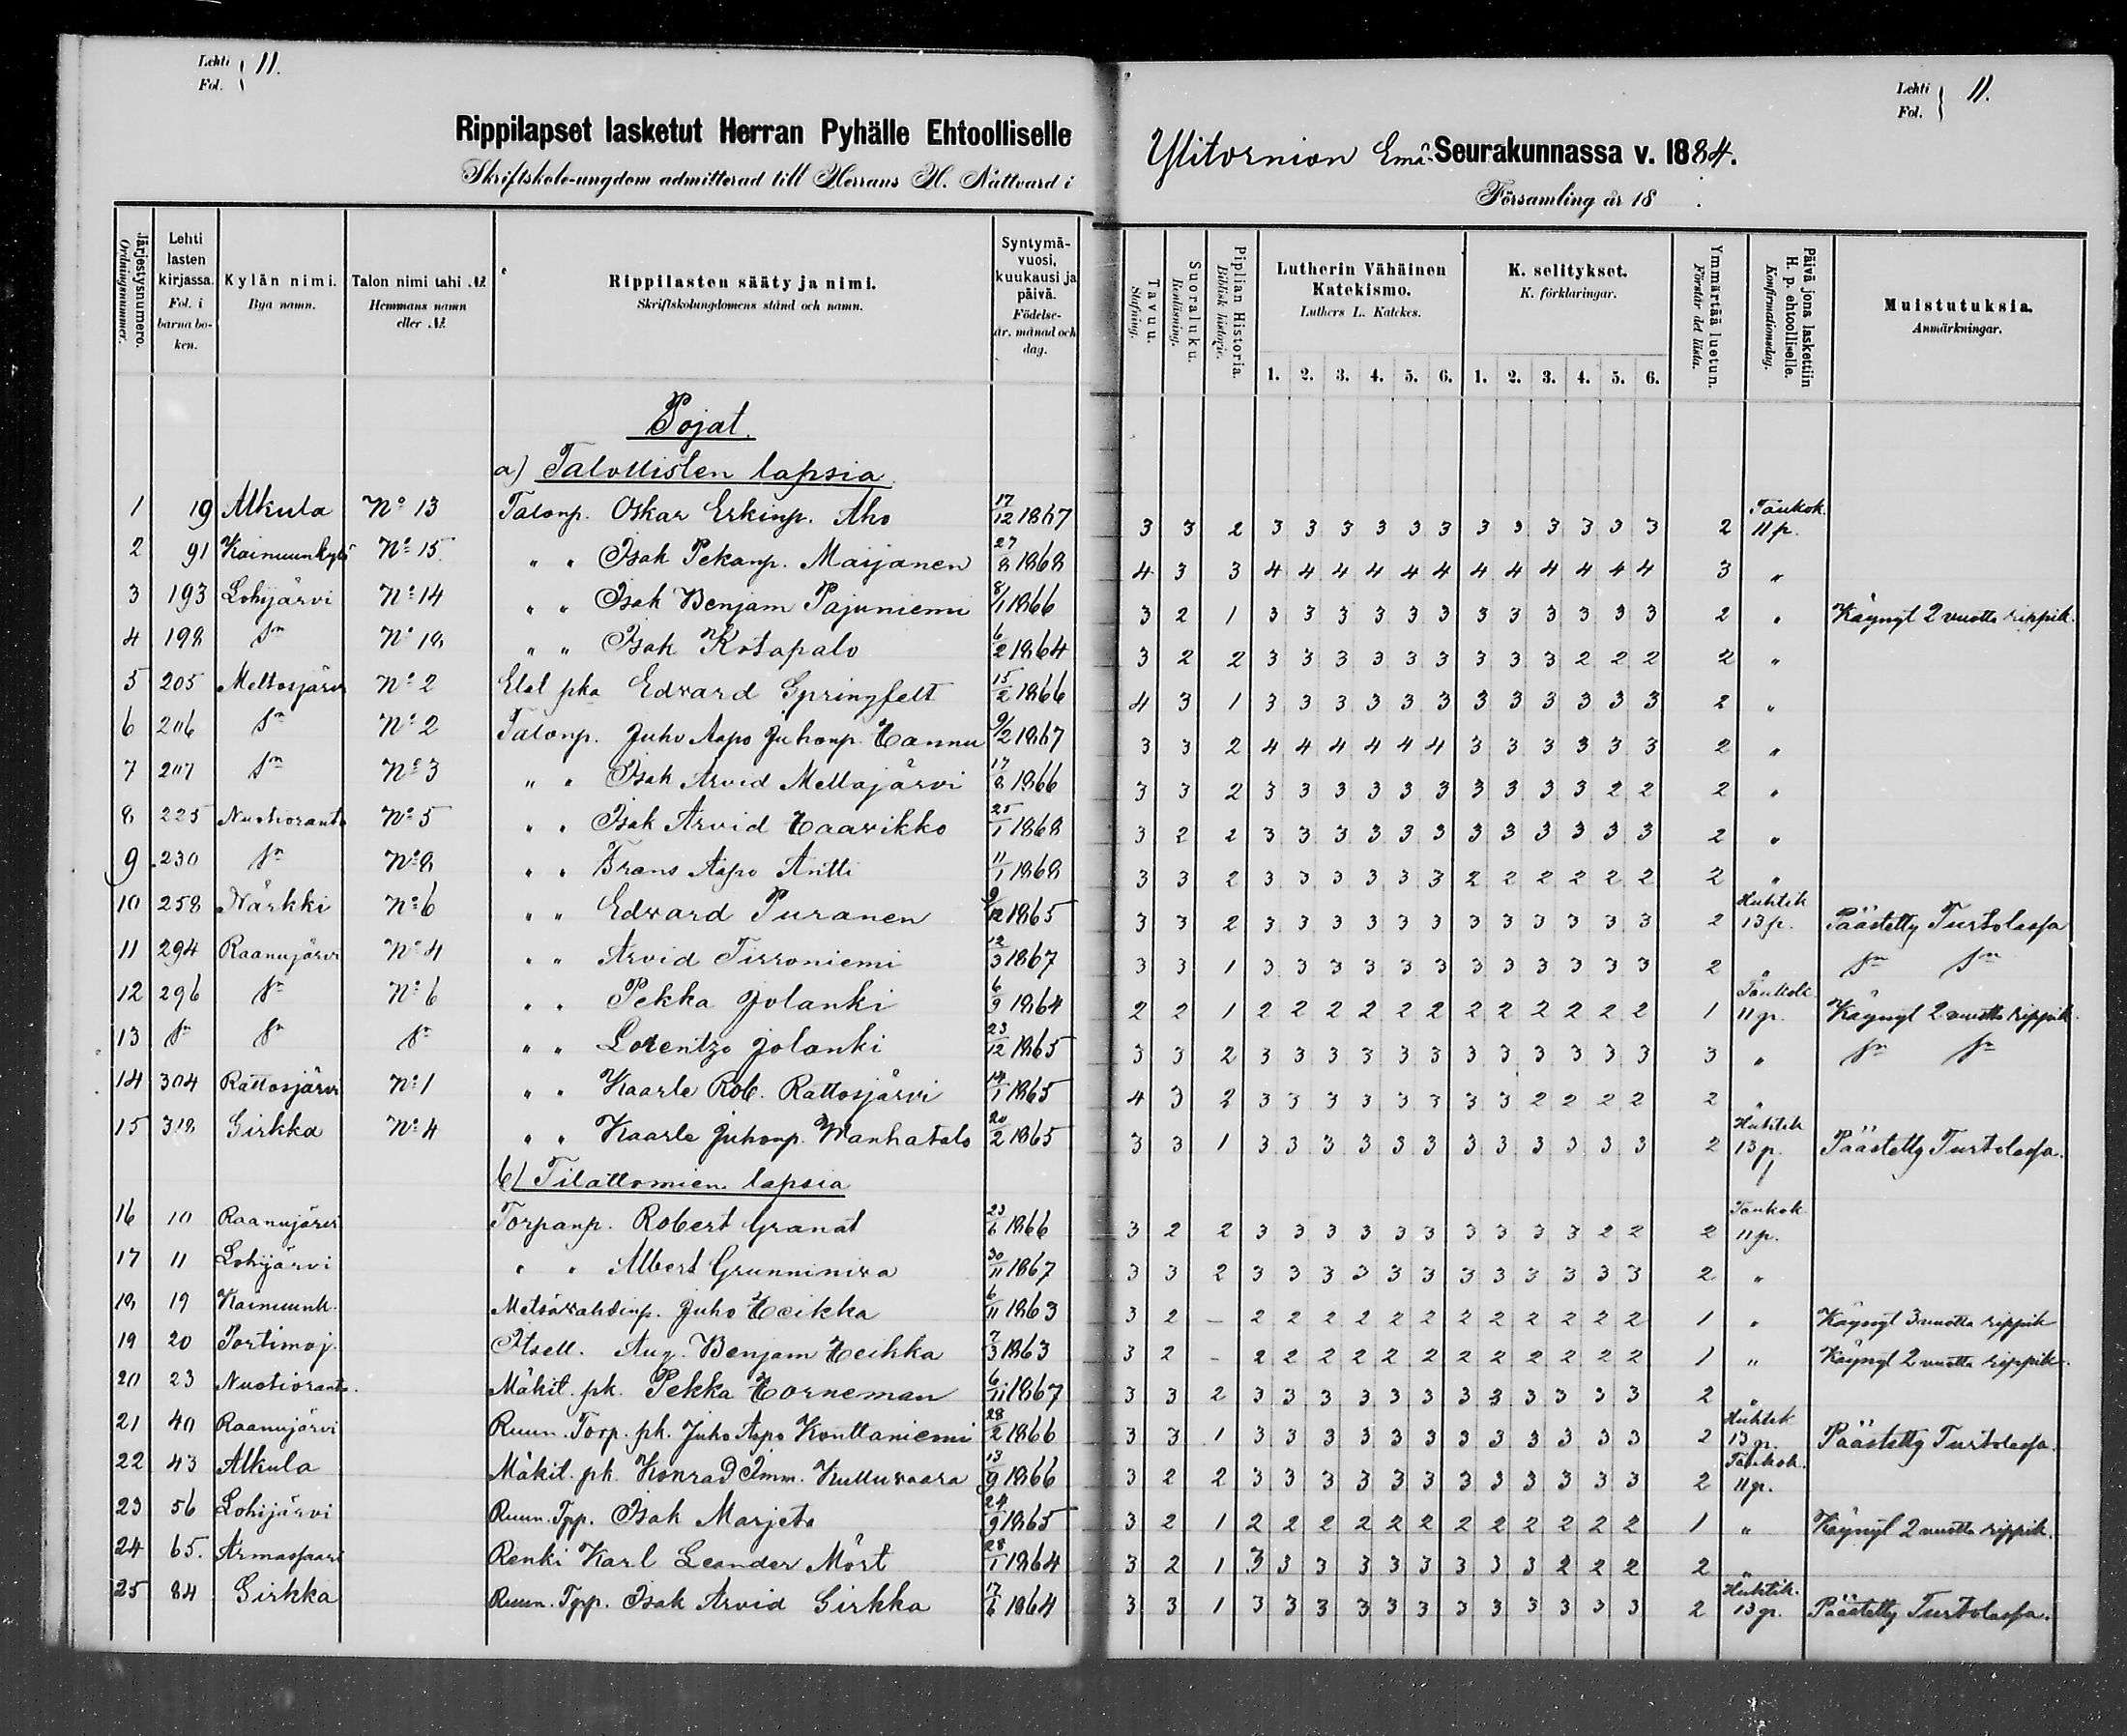 Lehti Fol. 11.
Rippilapset lasketut Herran Pyhälle Ehtoolliselle
Skriftskole-ungdom admitterad till Herrans H. Nattvard i
Lehti Fol. 11.
Ylitornion Emä-Seurakunnassa v. 1884.
Församling år 18 .
Järjestysnumero. Ordningsnummer. | Lehti lasten kirjassa. Fol. i barnaboken. | Kylän nimi. Bya namn. | Talon nimi tahi №. Hemmans namn eller №. | Rippilasten sääty ja nimi. Skriftskolungdomens stånd och namn. | Syntymävuosi, kuukausi ja päivä. Födelseår, månad och dag. | Tavuu. Stafning. | Suoraluku. Renläsning. | Piplian Historia. Biblisk historie. | Lutherin Vähäinen Katekismo. Luthers L. Katekes. 1. 2. 3. 4. 5. 6. | K. selitykset. K. förklaringar. 1. 2. 3. 4. 5. 6. | Ymmärtää luetun. Förstår det lästa. | Päivä jona laskettiin H. p. ehtoolliselle. Konfirmationsdag. | Muistutuksia. Anmärkningar.
Pojat.
a) Talollisten lapsia.
1 19 Alkula No 13 Talonp. Oskar Erkinp. Aho 17/12 1867 3 3 2 3 3 3 3 3 3 3 3 3 3 3 3 2 Toukok. 11 p.
2 91 Kainuunkylä No 15 " " Isak Pekanp. Maijanen 27/8 1868 4 3 3 4 4 4 4 4 4 4 4 4 4 4 4 3 "
3 193 Lohijärvi No 14 " " Isak Benjam Pajuniemi 8/1 1866 3 2 1 3 3 3 3 3 3 3 3 3 3 3 3 2 " Käynyt 2 vuotta rippik.
4 198 Sn No 18 " " Isak Kotapalo 6/2 1864 3 2 2 3 3 3 3 3 3 3 3 3 2 2 2 2 "
5 205 Meltosjärvi No 2 Elät pka Edvard Springfelt 15/2 1866 4 3 1 3 3 3 3 3 3 3 3 3 3 3 3 2 "
6 206 Sn No 2 Talonp. Juho Aapo Juhonp. Hannu 9/2 1867 3 3 2 4 4 4 4 4 4 3 3 3 3 3 3 2 "
7 207 Sn No 3 " " Isak Arvid Meltajärvi 17/8 1866 3 3 2 3 3 3 3 3 3 3 3 3 3 2 2 2 "
8 225 Nuotioranta No 5 " " Isak Arvid Haavikko 25/1 1868 3 2 2 3 3 3 3 3 3 3 3 3 3 3 3 2 "
9 230 Sn No 8 " " Frans Aapo Antti 11/1 1868 3 3 2 3 3 3 3 3 3 2 2 2 2 2 2 2 "
10 258 Närkki No 6 " " Edvard Puranen 9/12 1865 3 3 2 3 3 3 3 3 3 3 3 3 3 3 3 2 Huhtik 13 p. Päästetty Turtolassa
11 294 Raanujärvi No 4 " " Arvid Tirroniemi 12/3 1867 3 3 1 3 3 3 3 3 3 3 3 3 3 3 3 2 " Sn Sn
12 296 Sn No 6 " " Pekka Jolanki 6/9 1864 2 2 1 2 2 2 2 2 2 2 2 2 2 2 2 1 Toukok 11 p. Käynyt 2 vuotta rippik.
13 Sn Sn Sn " " Lorentzo Jolanki 23/12 1865 3 3 2 3 3 3 3 3 3 3 3 3 3 3 3 3 " Sn Sn
14 304 Rattosjärvi No 1 " " Kaarle Rob. Rattosjärvi 14/1 1865 4 3 2 3 3 3 3 3 3 3 3 2 2 2 2 2 "
15 318 Girkka No 4 " " Kaarle Juhonp. Wanhatalo 20/2 1865 3 3 1 3 3 3 3 3 3 3 3 3 3 3 3 2 Huhtik 13 p. Päästetty Turtolassa.
b) Tilattomien lapsia
16 10 Raanujärvi Torpanp. Robert Granat 23/6 1866 3 2 2 3 3 3 3 3 3 3 3 3 3 2 2 2 Toukok 11 p.
17 11 Lohijärvi " " Albert Grunniniva 30/11 1867 3 3 2 3 3 3 3 3 3 3 3 3 3 3 3 2 "
18 19 Kainuunk. Metsävahdinp. Juho Heikka 6/11 1863 3 2 – 2 2 2 2 2 2 2 2 2 2 2 2 1 " Käynyt 3 vuotta rippik
19 20 Portimoj. Itsell. Aug. Benjam Heikka 7/3 1863 3 2 – 2 2 2 2 2 2 2 2 2 2 2 2 1 " Käynyt 2 vuotta rippik.
20 23 Nuotioranta. Mäkit. pk. Pekka Horneman 6/11 1867 3 3 2 3 3 3 3 3 3 3 3 3 3 3 3 2 "
21 40 Raanujärvi Ruun. Torp. pk. Juho Aapo Konttaniemi 28/2 1866 3 3 1 3 3 3 3 3 3 3 3 3 3 3 3 2 Huhtik 13 p. Päästetty Turtolassa.
22 43 Alkula Mäkit. pk. Konrad Imm. Kulluvaara 13/9 1866 3 2 2 3 3 3 3 3 3 3 3 3 3 3 3 2 Toukok. 11 p.
23 56 Lohijärvi Ruun. Tpp. Isak Marjeta 24/9 1865 3 2 1 2 2 2 2 2 2 2 2 2 2 2 2 1 " Käynyt 2 vuotta rippik.
24 65. Armassaari Renki Karl Leander Mört 28/1 1864 3 2 1 3 3 3 3 3 3 3 3 3 2 2 2 2 "
25 84 Girkka Ruun. Tpp. Isak Arvid Girkka 17/6 1864 3 3 1 3 3 3 3 3 3 3 3 3 3 3 3 2 Huhtik. 13 p. Päästetty Turtolassa.